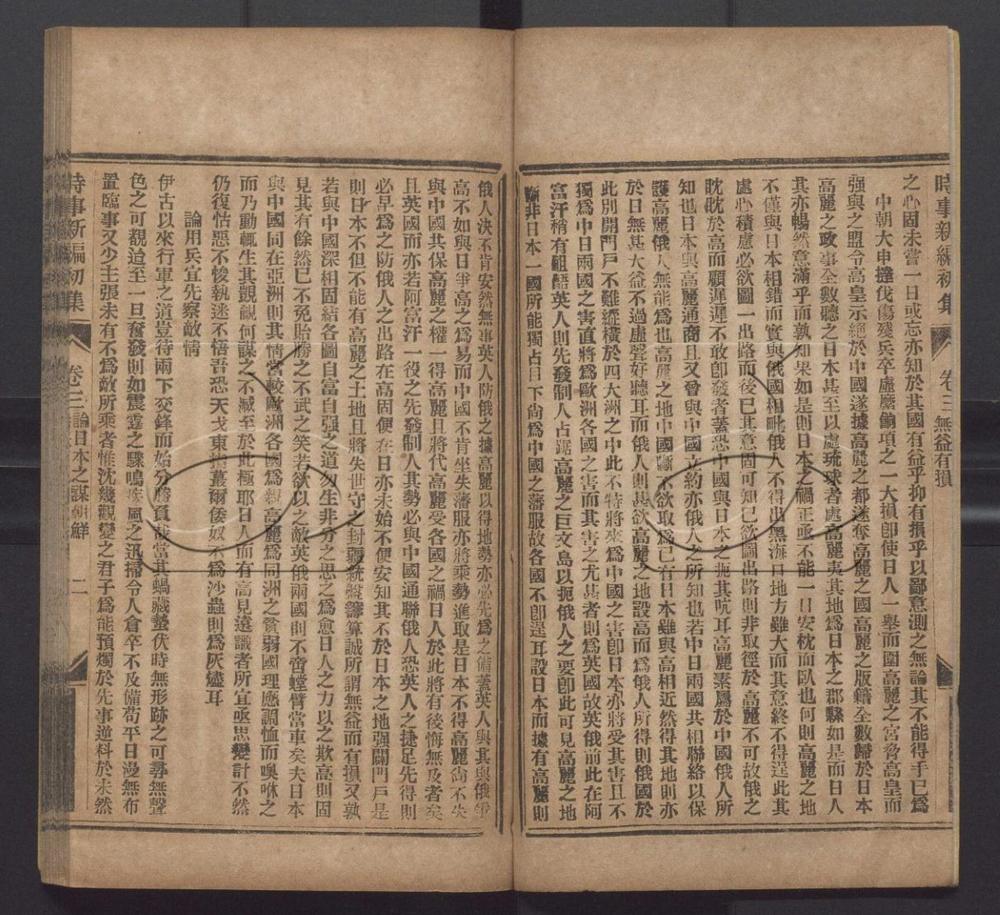 時事新編初集 卷三 無益有損
之心固未嘗一日或忘亦知於其國有益乎抑有損乎以鄙意測之無論其不能得手已爲
中朝大申撻伐傷殘兵卒虛糜餉項之一大損卽使日人一舉而圍高麗之宮脅高皇而
强與之盟令高皇示絕於中國遂據高麗之都遂奪高麗之國高麗之版籍全數歸於日本
高麗之政事全數聽之日本甚至以處琉球者處高麗夷其地爲日本之郡縣如是而日人
其亦暢然意滿乎而孰知果如是則日本之禍正亟不能一日安枕而臥也何則高麗之地
不僅與日本相錯而實與俄國相毗俄人不得出黑海口地方雖大而其意終不得逞此其
處心積慮必欲圖一出路而後已其意固可知已欲圖出路則非取徑於高麗不可故俄之
眈眈於高而顧遲遲不敢卽發者蓋恐中國與日本之扼其吭耳高麗素屬於中國俄人所
知也日本與高麗通商且又曾與中國立約亦俄人之所知也若中日兩國共相聯絡以保
護高麗俄人無能爲也高麗之地中國斷不欲取爲已有日本雖與高相近然得其地則亦
於日無甚大益不過虛聲好聽耳而俄人則甚欲高麗之地設高而爲俄人所得則俄國於
此別開門戶不難縱橫於四大洲之中此不特將來爲中國之害卽日本亦將受其害且不
獨爲中日兩國之害直將爲歐洲各國之害而其害之尤甚者則爲英國故英俄前此在阿
富汗稍有齟齬英人則先發制人占踞高麗之巨文島以扼俄人之要卽此可見高麗之地
斷非日本一國所能獨占目下尙爲中國之藩服故各國不卽逞耳設日本而據有高麗則
俄人決不肯安然無事英人防俄之據高麗以得地勢亦必先爲之備蓋英人與其與俄爭
高不如與日爭高之爲易而中國不肯坐失藩服亦將乘勢進取是日本不得高麗尙不失
與中國共保高麗之權一得高麗且將代高麗受各國之禍日人於此將有後悔無及者矣
且英國而亦若阿富汗一役之先發制人其勢必與中國通聯俄人恐英人之捷足先得則
必早爲之防俄人之出路在高固便在日亦未始不便安知其不於日本之地强闢門戶是
則日本不但不能有高麗之土地且將失世守之封疆統盤籌算誠所謂無益而有損又孰
若與中國深相固結各圖自富自强之道勿生非分之思之爲愈日人之力以之欺高則固
見其有餘然已不免貽勝之不武之笑若欲以之敵英俄兩國則不啻螳臂當車矣夫日本
與中國同在亞洲則其情當較歐洲各國爲親高麗爲同洲之貧弱國理應調恤而噢咻之
而乃動輒生其覬覦何謀之不臧至於此極耶日人而有高見遠識者所宜亟思變計不然
仍復怙惡不悛執迷不悟吾恐天戈東指蕞爾倭奴不爲沙蟲則爲灰燼耳
論用兵宜先察敵情
伊古以來行軍之道豈待兩下交鋒而始分勝負哉當其蝸藏蟄伏時無形跡之可尋無聲
色之可覩迨至一旦奮發則如震霆之驟鳴疾風之迅掃令人倉卒不及備苟平日漫無布
置臨事又少主張未有不爲敵所乘者惟沈幾觀變之君子爲能預燭於先事逆料於未然
時事新編初集 卷三 論日本之謀朝鮮 二